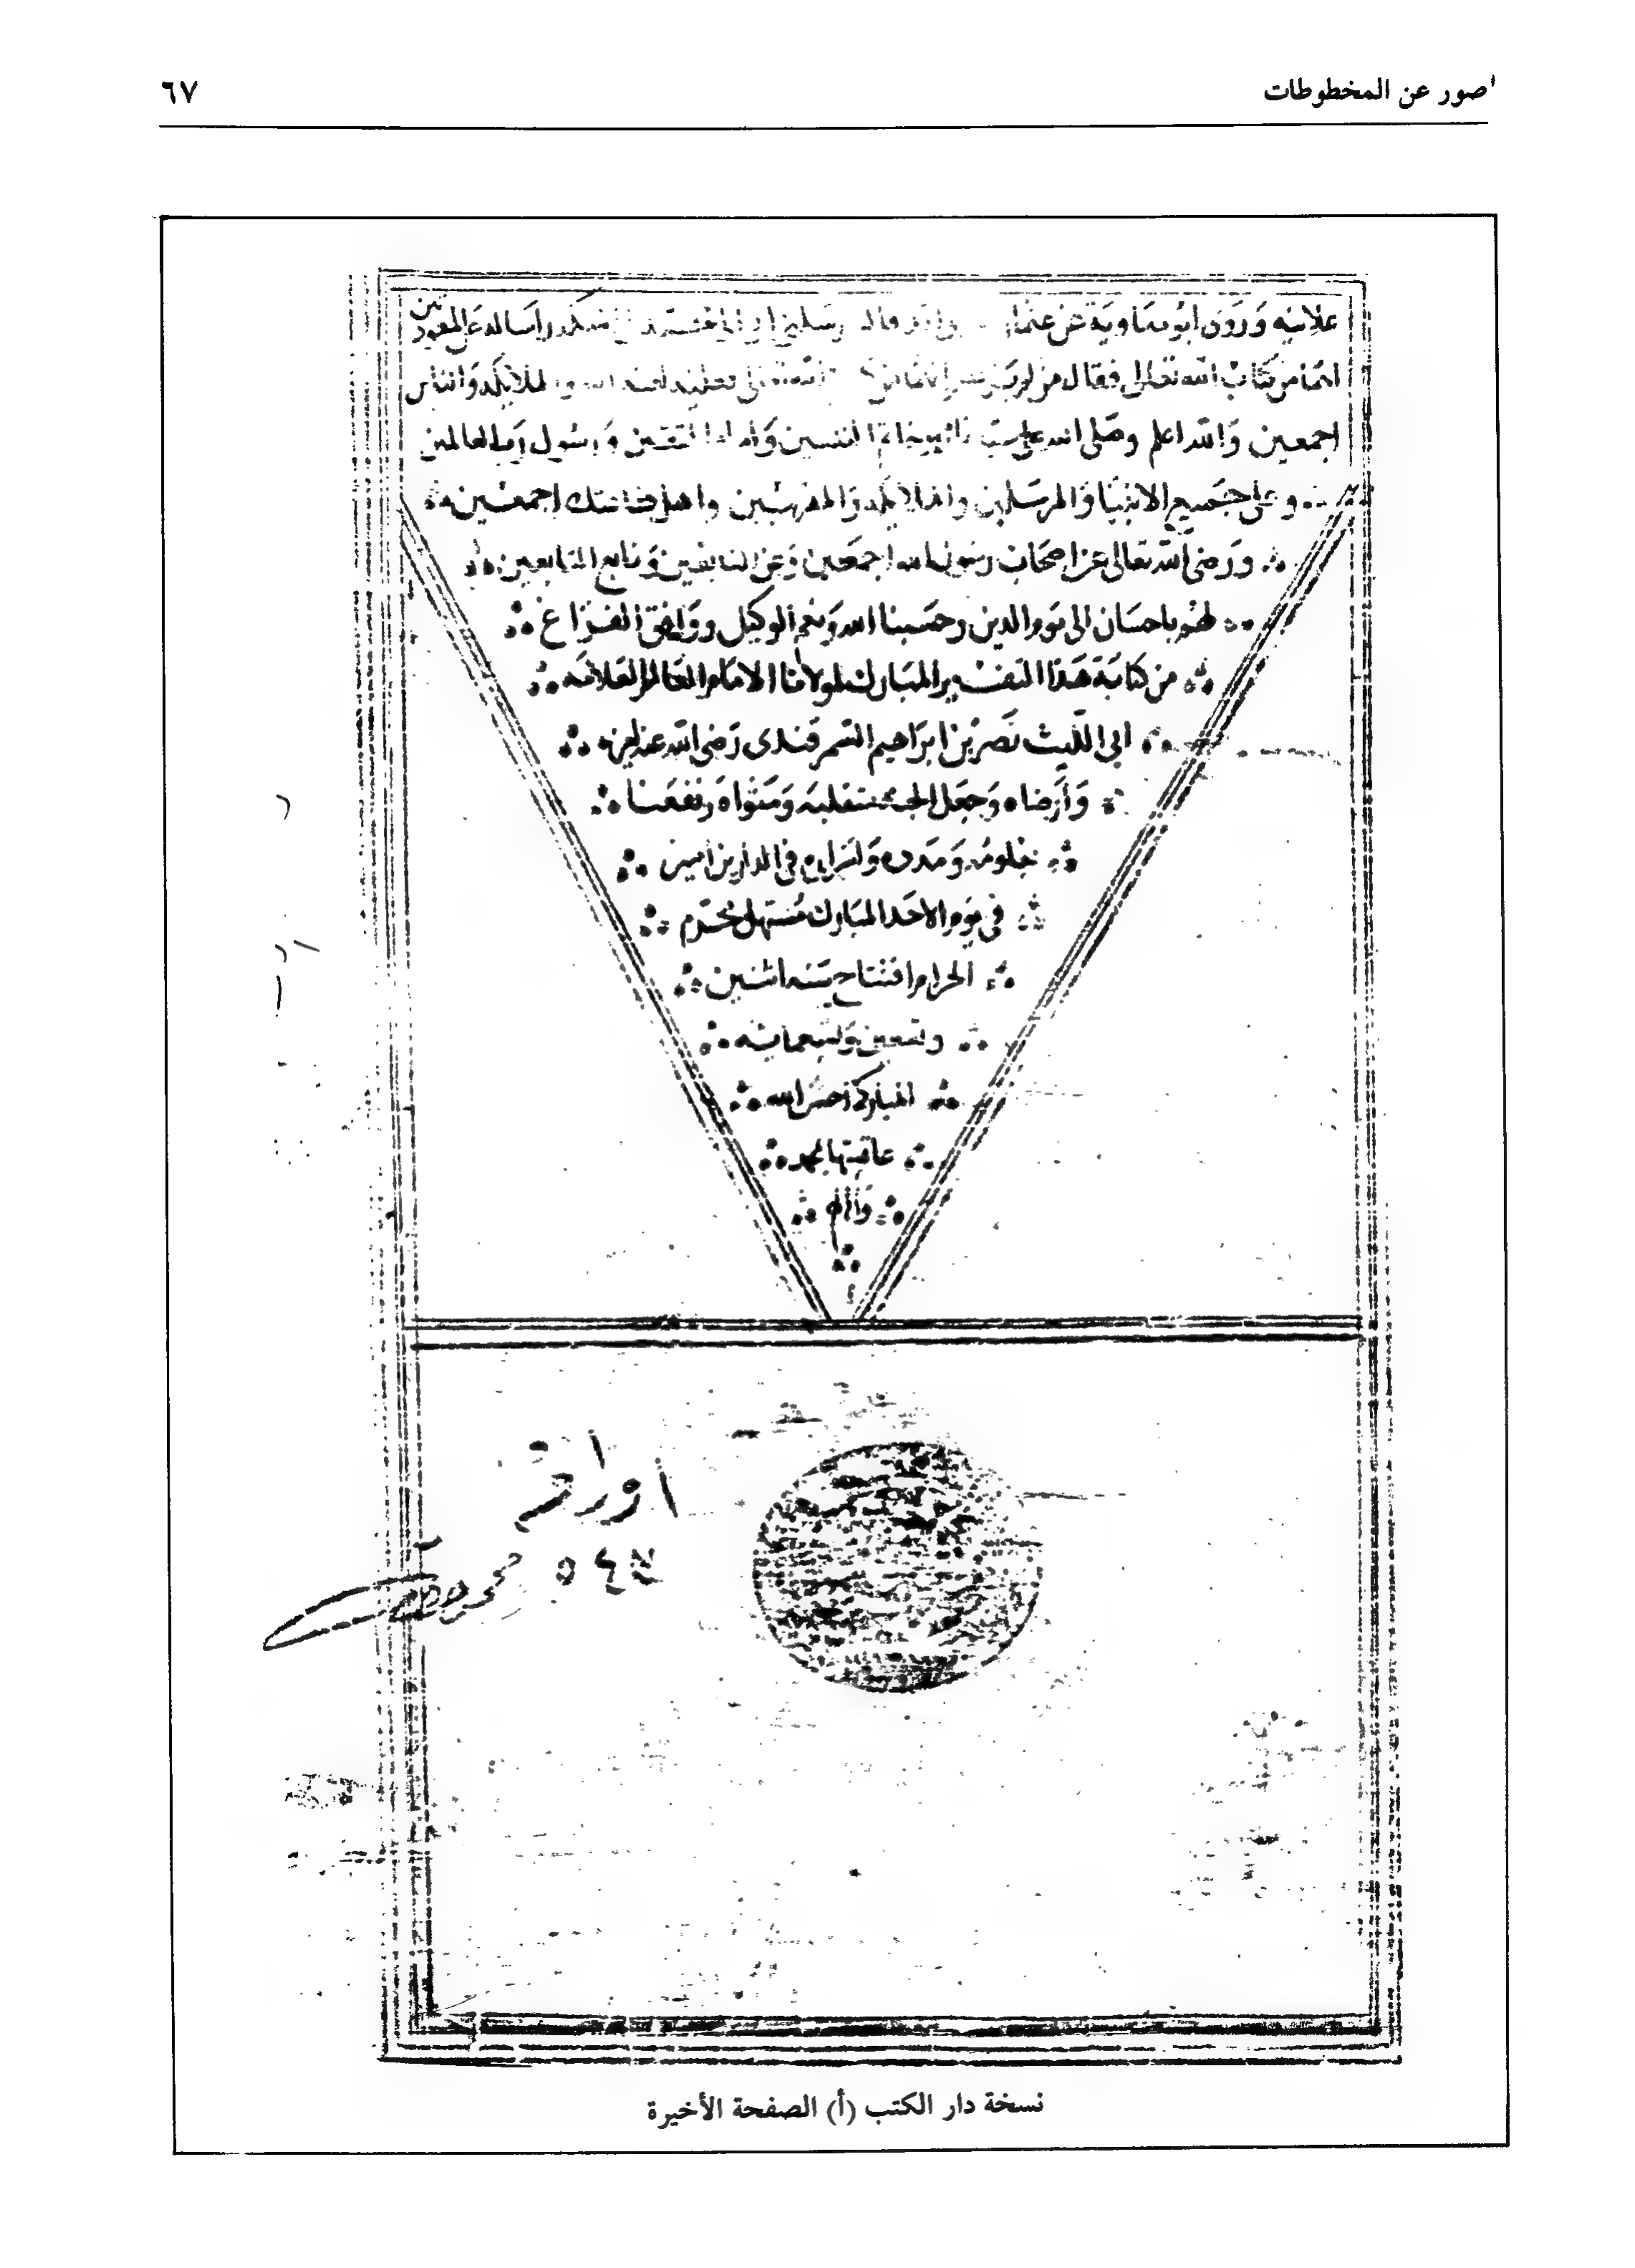 صور عن المخطوطات
٦٧
علانيه وروى ابو معاوية عن عثمان
انهما من كتاب الله تعالى فقال من لم والملائكة والناس
اجمعين والله اعلم وصلى الله على ورسول رب العالمين
وعلى جميع الانبيا والمرسلين والملائكة والمقربين واهل طاعتك اجمعين
ورضى الله تعالى عن اصحاب رسول الله اجمعين وعن التابعين وتابع التابعين
لهم باحسان الى يوم الدين وحسبنا الله ونعم الوكيل ووافق الفراغ
من كتابة هذا التفسير المبارك لمولانا الامام العالم العلامه
ابى الليث نصر بن ابراهيم السمرقندى رضى الله عنه
وأرضاه وجعل الجنة متقلبه ومثواه ونفعنا
بعلومه ومدده فى الدارين امين
فى يوم الاحد المبارك مستهل محرم
الحرام افتتاح سنة اثنين
وتسعين وتسعمائه
المباركة احسن الله
عاقبتها بمحمد
واله
اوراقه
٥٤٧
نسخة دار الكتب (أ) الصفحة الأخيرة